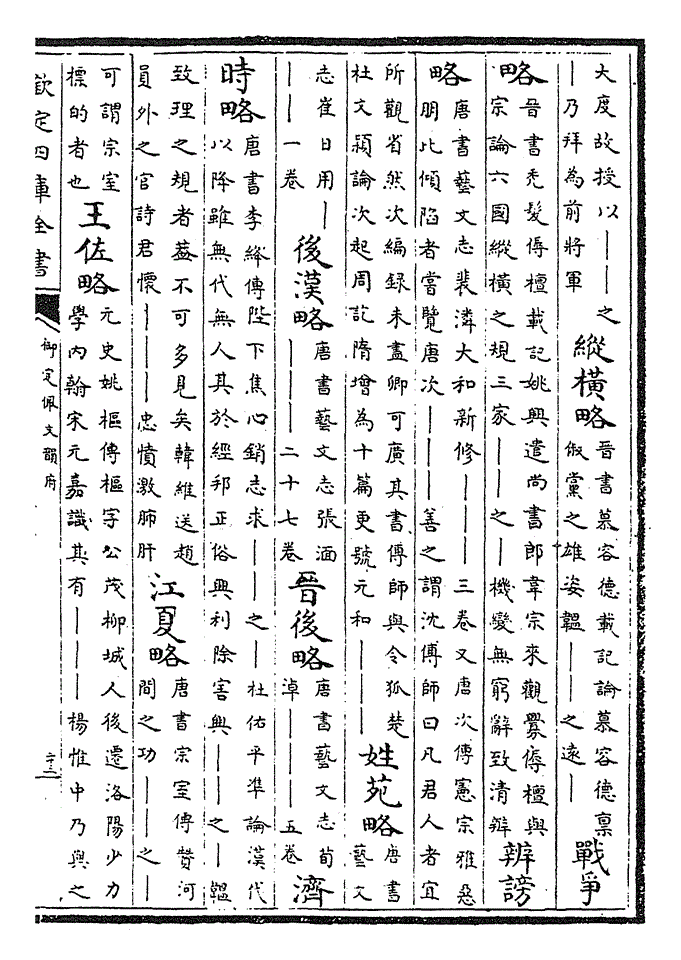 大度故授以――之
――乃拜為前將軍
縱橫略
晉書慕容德載記論慕容德禀
俶黨之雄姿韞――之遠―
戰爭
略
晉書禿髮傉檀載記姚興遣尚書郎韋宗來觀釁傉檀與
宗論六國縱橫之規三家――之―機變無窮辭致清辯
辨謗
略
唐書藝文志裴潾大和新修―――三卷又唐次傳憲宗雅惡
朋比傾陷者嘗覽唐次―――善之謂沈傅師曰凡君人者宜
所觀省然次編録未盡卿可廣其書傅師與令狐楚
杜文潁論次起周訖隋增為十篇更號元和―――
姓苑略
唐書
藝文
志崔日用―
――一卷
後漢略
唐書藝文志張湎
―――二十七卷
晉後略
唐書藝文志荀
綽―――五卷
濟
時略
唐書李絳傳陛下焦心銷志求――之―杜佑平準論漢代
以降雖無代無人其於經邦正俗興利除害興――之―韞
致理之規者葢不可多見矣韓維送趙
員外之官詩君懷―――忠憤激肺肝
江夏略
唐書宗室傳贊河
間之功――之―
可謂宗室
標的者也
王佐略
元史姚樞傳樞字公茂柳城人後遷洛陽少力
學内翰宋元嘉識其有―――楊惟中乃與之
欽定四庫全書
御定佩文韻府